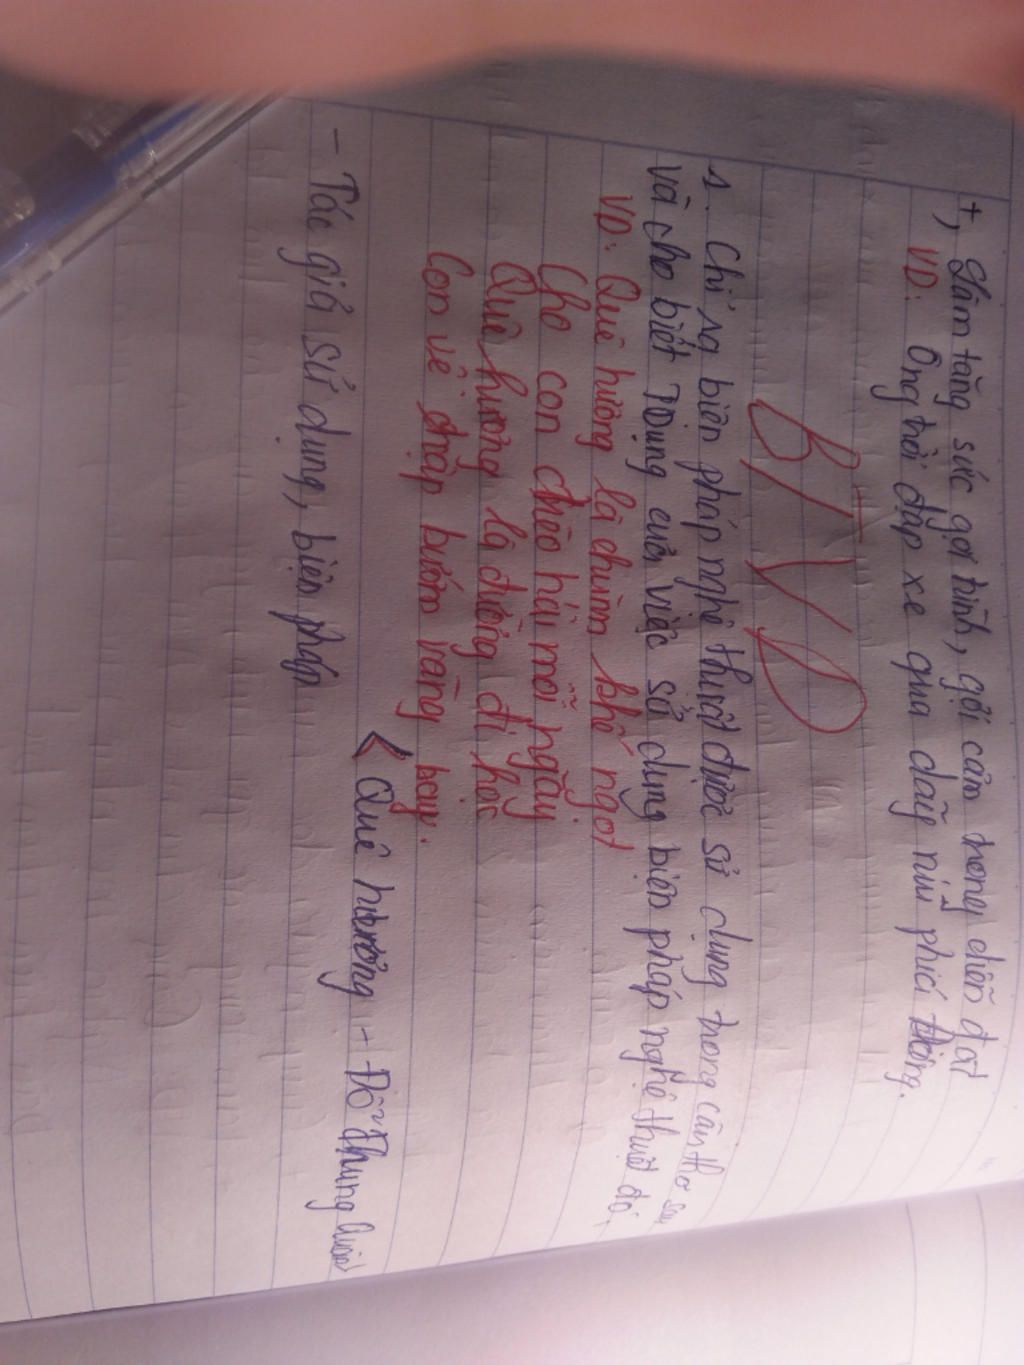 +, Làm tăng sức gợi hình, gợi cảm trong diễn đạt
VD: Ông trời đạp xe qua dãy núi phía đông.
BTVD
1. Chỉ ra biện pháp nghệ thuật được sử dụng trong câu thơ sau
và cho biết TDụng của việc sử dụng biện pháp nghệ thuật đó.
VD: Quê hương là chùm khế ngọt
Cho con chèo hái mỗi ngày
Quê hương là đường đi học
Con về rợp bướm vàng bay.
< Quê hương - Đỗ Trung Quân
- Tác giả sử dụng, biện pháp